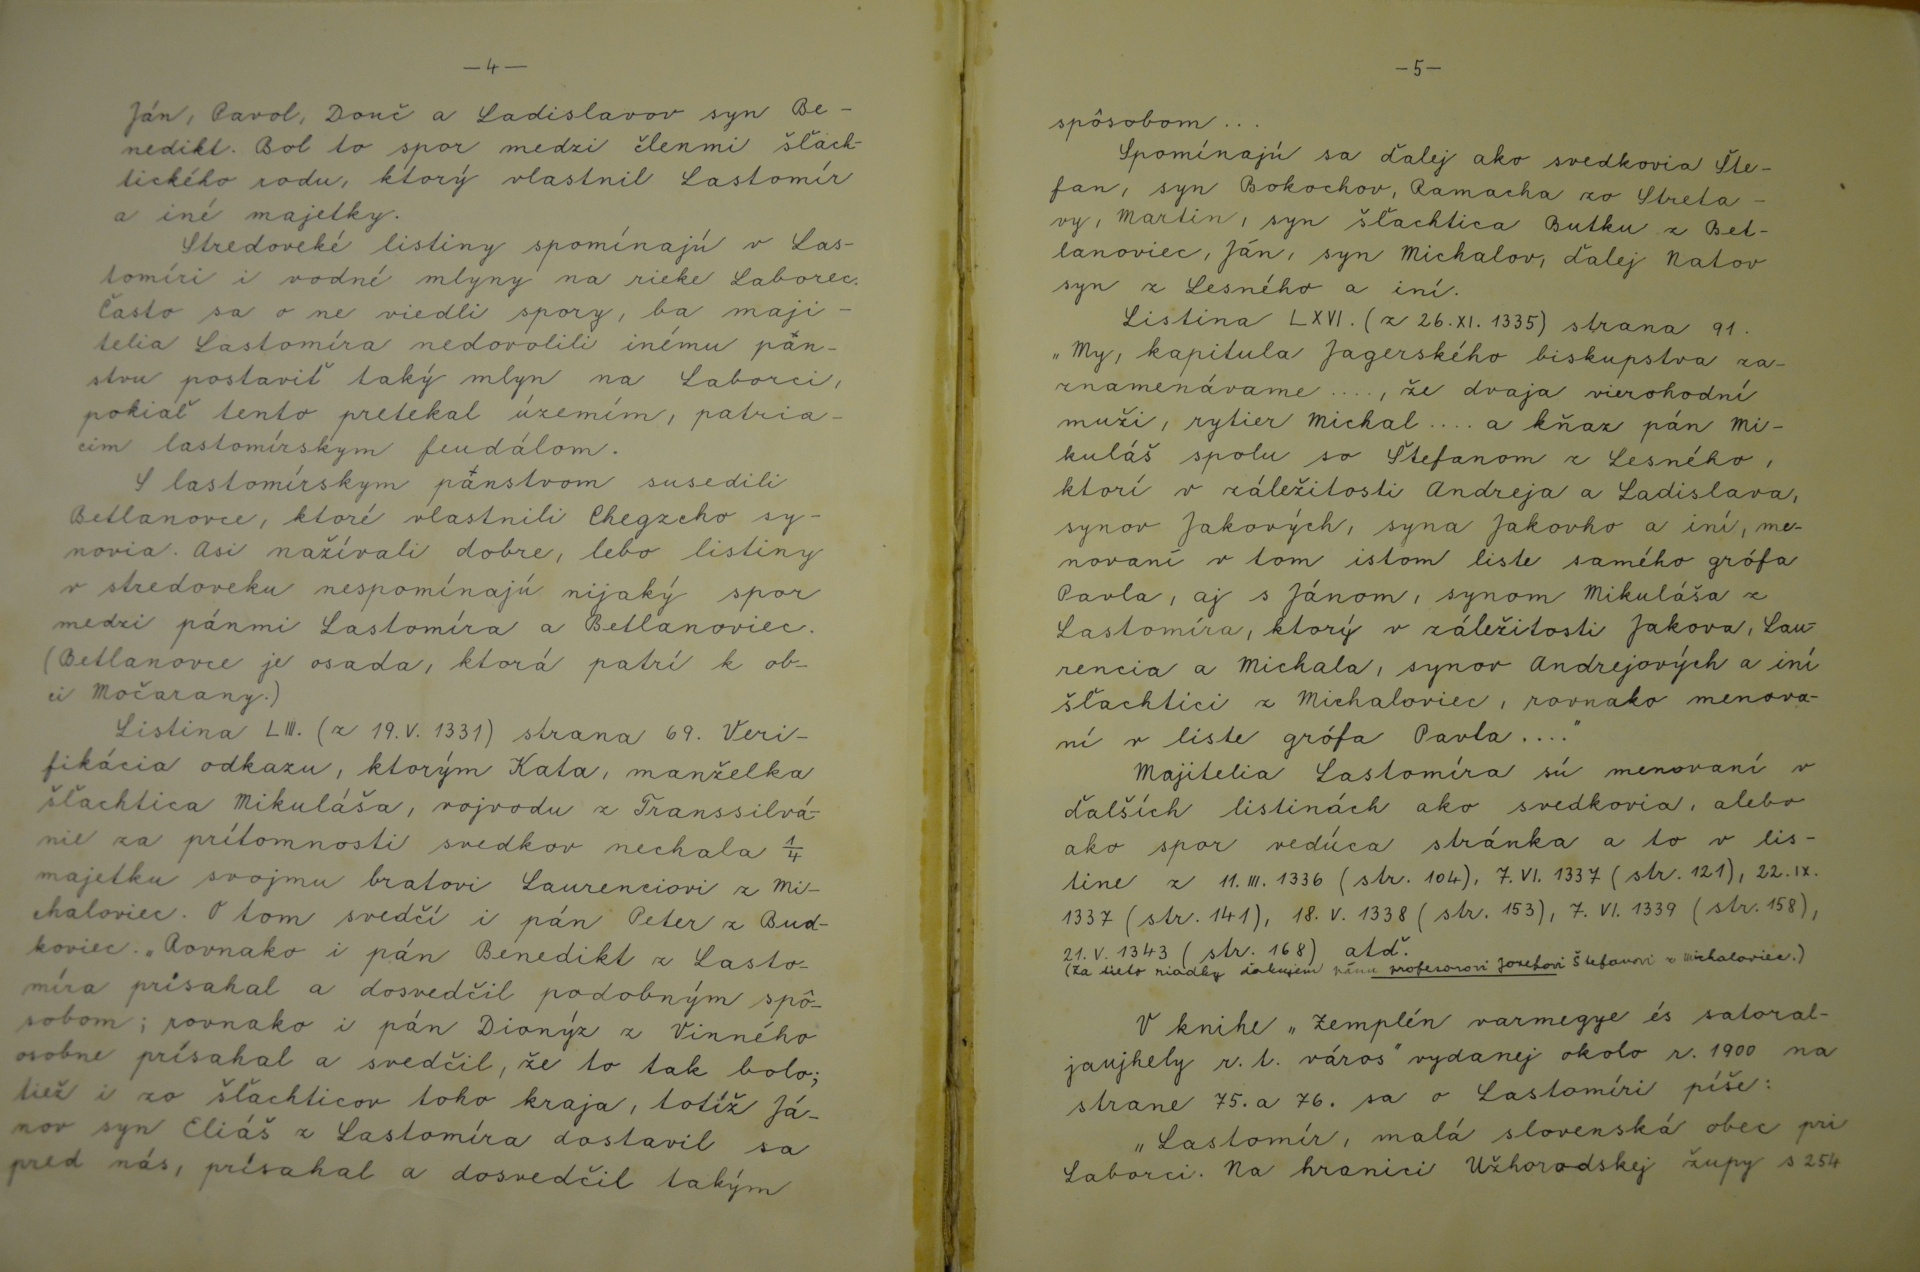 —4—
Ján, Pavol, Donč a Ladislavov syn Be-
nedikt. Bol to spor medzi členmi šľach-
tického rodu, ktorý vlastnil Lastomír
a iné majetky.
Stredoveké listiny spomínajú v Las-
tomíri i vodné mlyny na rieke Laborec.
Často sa o ne viedli spory, ba maji-
telia Lastomíra nedovolili inému pán-
stvu postaviť taký mlyn na Laborci,
pokiaľ tento pretekal územím, patria-
cim lastomírskym feudálom.
S lastomírskym pánstvom susedili
Betlanovce, ktoré vlastnili Chegzcho sy-
novia. Asi nažívali dobre, lebo listiny
v stredoveku nespomínajú nijaký spor
medzi pánmi Lastomíra a Betlanoviec.
(Betlanovce je osada, ktorá patrí k ob-
ci Močarany.)
Listina LIII. (z 19.V. 1331) strana 69. Veri-
fikácia odkazu, ktorým Kata, manželka
šľachtica Mikuláša, vojvodu z Transsilvá-
nie za prítomnosti svedkov nechala 1/4
majetku svojmu bratovi Laurenciovi z Mi-
chaloviec. O tom svedčí i pán Peter z Bud-
koviec. „Rovnako i pán Benedikt z Lasto-
míra prísahal a dosvedčil podobným spô-
sobom; rovnako i pán Dionýz z Vinného
osobne prísahal a svedčil, že to tak bolo;
tiež i zo šľachticov toho kraja, totiž Já-
nov syn Eliáš z Lastomíra dostavil sa
pred nás, prísahal a dosvedčil takým
—5—
spôsobom...
Spomínajú sa ďalej ako svedkovia Šte-
fan, syn Bokochov, Ramacha zo Streta-
vy, Martin, syn šľachtica Butku z Bet-
lanoviec, Ján, syn Michalov, ďalej Natov
syn z Lesného a iní.
Listina LXVI. (z 26.XI. 1335) strana 91.
„My, kapitula Jagerského biskupstva za-
znamenávame ...., že dvaja vierohodní
muži, rytier Michal .... a kňaz pán Mi-
kuláš spolu so Štefanom z Lesného,
ktorí v záležitosti Andreja a Ladislava,
synov Jakových, syna Jakovho a iní, me-
novaní v tom istom liste samého grófa
Pavla, aj s Jánom, synom Mikuláša z
Lastomíra, ktorý v záležitosti Jakova, Lau-
rencia a Michala, synov Andrejových a iní
šľachtici z Michaloviec, rovnako menova-
ní v liste grófa Pavla...."
Majitelia Lastomíra sú menovaní v
ďalších listinách ako svedkovia, alebo
ako spor vedúca stránka a to v lis-
tine z 11.III. 1336 (str. 104), 7.VI. 1337 (str. 121), 22.IX.
1337 (str. 141), 18.V. 1338 (str. 153), 7.VI. 1339 (str. 158),
21.V. 1343 (str. 168) atď.
(Za tieto riadky ďakujem pánu profesorovi Jozefovi Štefanovi z Michaloviec.)
V knihe „Zemplén varmegye és satoral-
jaujhely r. t. város" vydanej okolo r. 1900 na
strane 75. a 76. sa o Lastomíri píše:
„Lastomír, malá slovenská obec pri
Laborci. Na hranici Užhorodskej župy s 254